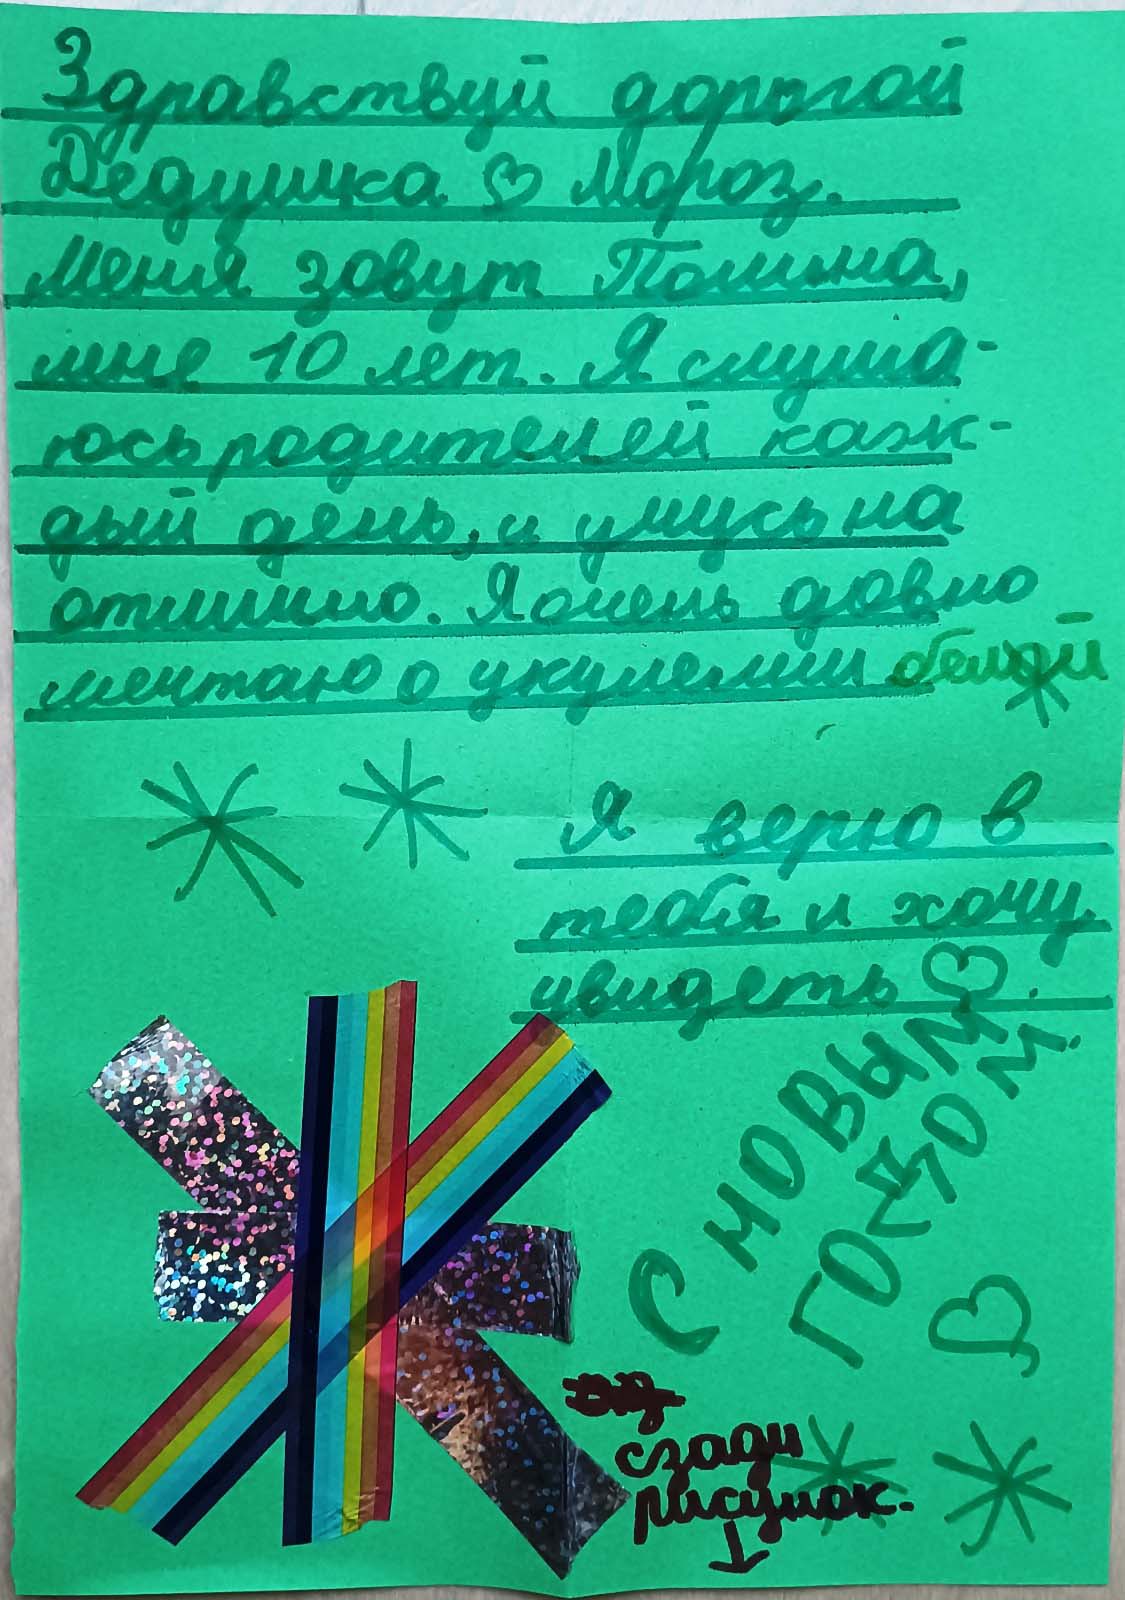 Здравствуй дорогой
Дедушка ♡ Мороз.
Меня зовут Полина,
мне 10 лет. Я слуша-
юсь родителей каж-
дый день, и учусь на
отлично. Я очень довно
мечтаю о укулелии белой
Я верю в
тебя и хочу
увидеть ♡.
С НОВЫМ
ГОДОМ!
сзади
рисунок.